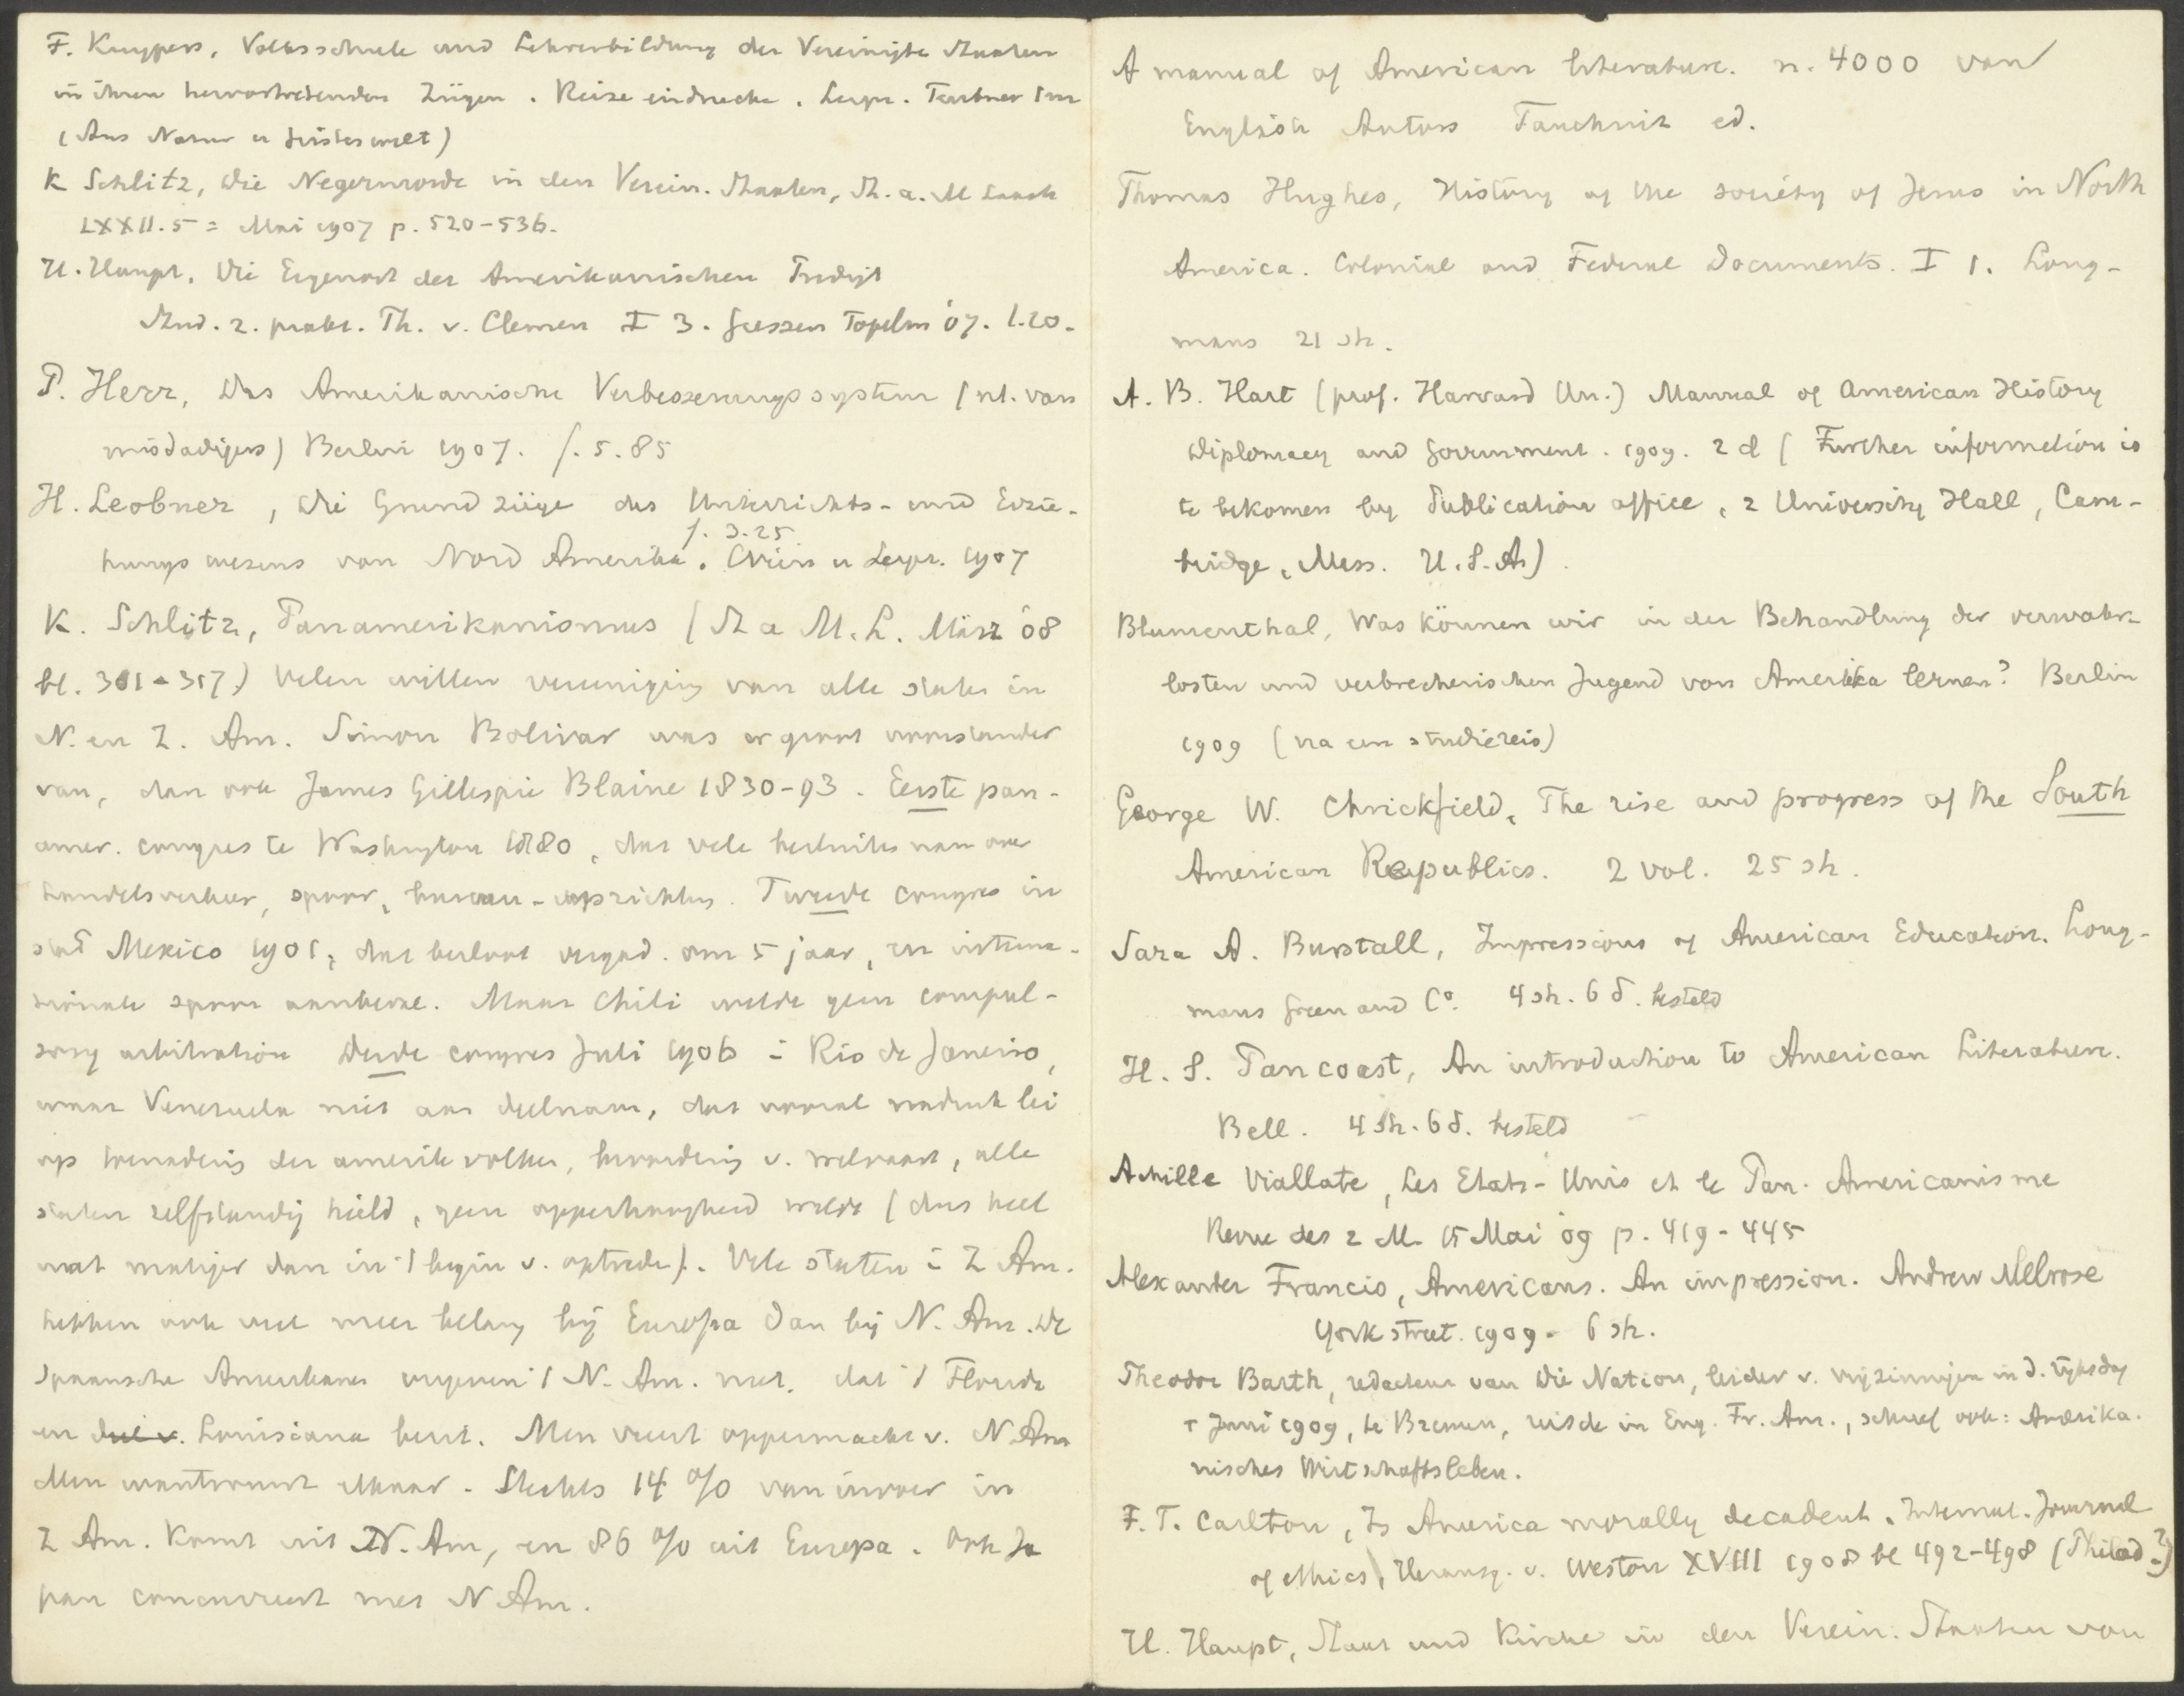 F. Kuypers, Volksschule und Lehrerbildung der Vereinigte Staaten
in ihren hervortretenden Zügen. Reise eindrücke. Leipz. Teubner
(Aus Natur u Geisteswelt)
K Schlitz, Die Negermorde in den Verein. Staaten, St. a. M Laach
LXXII.5 = Mai 1907 p. 520-536.
H. Haupt, Die Eigenart der Amerikanischen Predigt
Stud. z. prakt. Th. v. Clemen I 3. Giessen Topelm '07. 1.20.
P. Herr, Das Amerikanische Verbesserungssystem (nl. van
misdadigers) Berlin 1907. f. 5.85
H. Leobner, Die Grundzüge des Unterrichts- und Erzie-
f. 3.25
hungswesens von Nord Amerika. Wien u Leipz. 1907
K. Schlitz, Panamerikanismus (St a M. L. März '08
bl. 301-317) Velen willen vereeniging van alle staten in
N. en Z. Am. Simon Bolivar was er groot voorstander
van, dan ook James Gillespie Blaine 1830-93. Eerste pan-
amer. congres te Washington 1880, dat vele besluiten nam over
handelsverkeer, spoor, bureau-oprichting. Tweede congres in
stad Mexico 1901, dat besloot vergad. om 5 jaar, en interna-
tionale spoor aanbeval. Maar Chili wilde geen compul-
sory arbitration Derde congres Juli 1906 i Rio de Janeiro,
waar Venezuela niet aan deelnam, dat vooral nadruk lei
op toenadering der amerik volken, bevordering v. welvaart, alle
staten zelfstandig hield, geen opperhoogheid wilde (dus heel
wat matiger dan in 't begin v. optreden). Vele staten i Z Am.
hebben ook veel meer belang bij Europa dan bij N. Am. De
Spaansche Amerikanen vergeven 't N. Am. niet, dat 't Florida
en deel v. Louisiana bezit. Men vreest oppermacht v. N Am
Men wantrouwt elkaar. Slechts 14 % van invoer in
Z Am. komt uit N. Am, en 86 % uit Europa. Ook Ja
pan concurreert met N Am.
A manual of American literature. n. 4000 van
English Autors Tauchnitz ed.
Thomas Hughes, History of the society of Jesus in North
America. Colonial and Federal Documents. I 1. Long-
mans 21 sh.
A. B. Hart (prof. Harvard Un.) Manual of American History
Diplomacy and Government. 1909. 2 d (Further information is
te bekomen by Publication office, 2 University Hall, Cam-
bridge, Mass. U.S.A)
Blumenthal, Was können wir in der Behandlung der verwahr-
losten und verbrecherischen Jugend von Amerika lernen? Berlin
1909 (na een studiereis)
George W. Chrickfield, The rise and progress of the South
American Republics. 2 vol. 25 sh.
Sara A. Burstall, Impressions of American Education. Long-
mans Green and Co. 4 sh. 6 d. besteld
H. S. Pancoast, An introduction to American Literature.
Bell. 4 sh. 6 d. besteld
Achille Viallate, Les Etats-Unis et le Pan. Americanisme
Revue des 2 M. 15 Mai 09 p. 419-445
Alexander Francis, Americans. An impression. Andrew Melrose
York street. 1909. 6 sh.
Theodor Barth, redacteur van Die Nation, leider v. vrijzinnigen in d. rijksdag
† Juni 1909, te Bremen, reisde in Eng. Fr. Am., schreef ook: Amerika.
nisches Wirtschaftsleben.
F. T. Carlton, Is America morally decadent. Internat. Journal
of ethics, Herausg. v. Weston XVIII 1908 bl 492-498 (Philad?)
H. Haupt, Staat und Kirche in den Verein. Staaten von